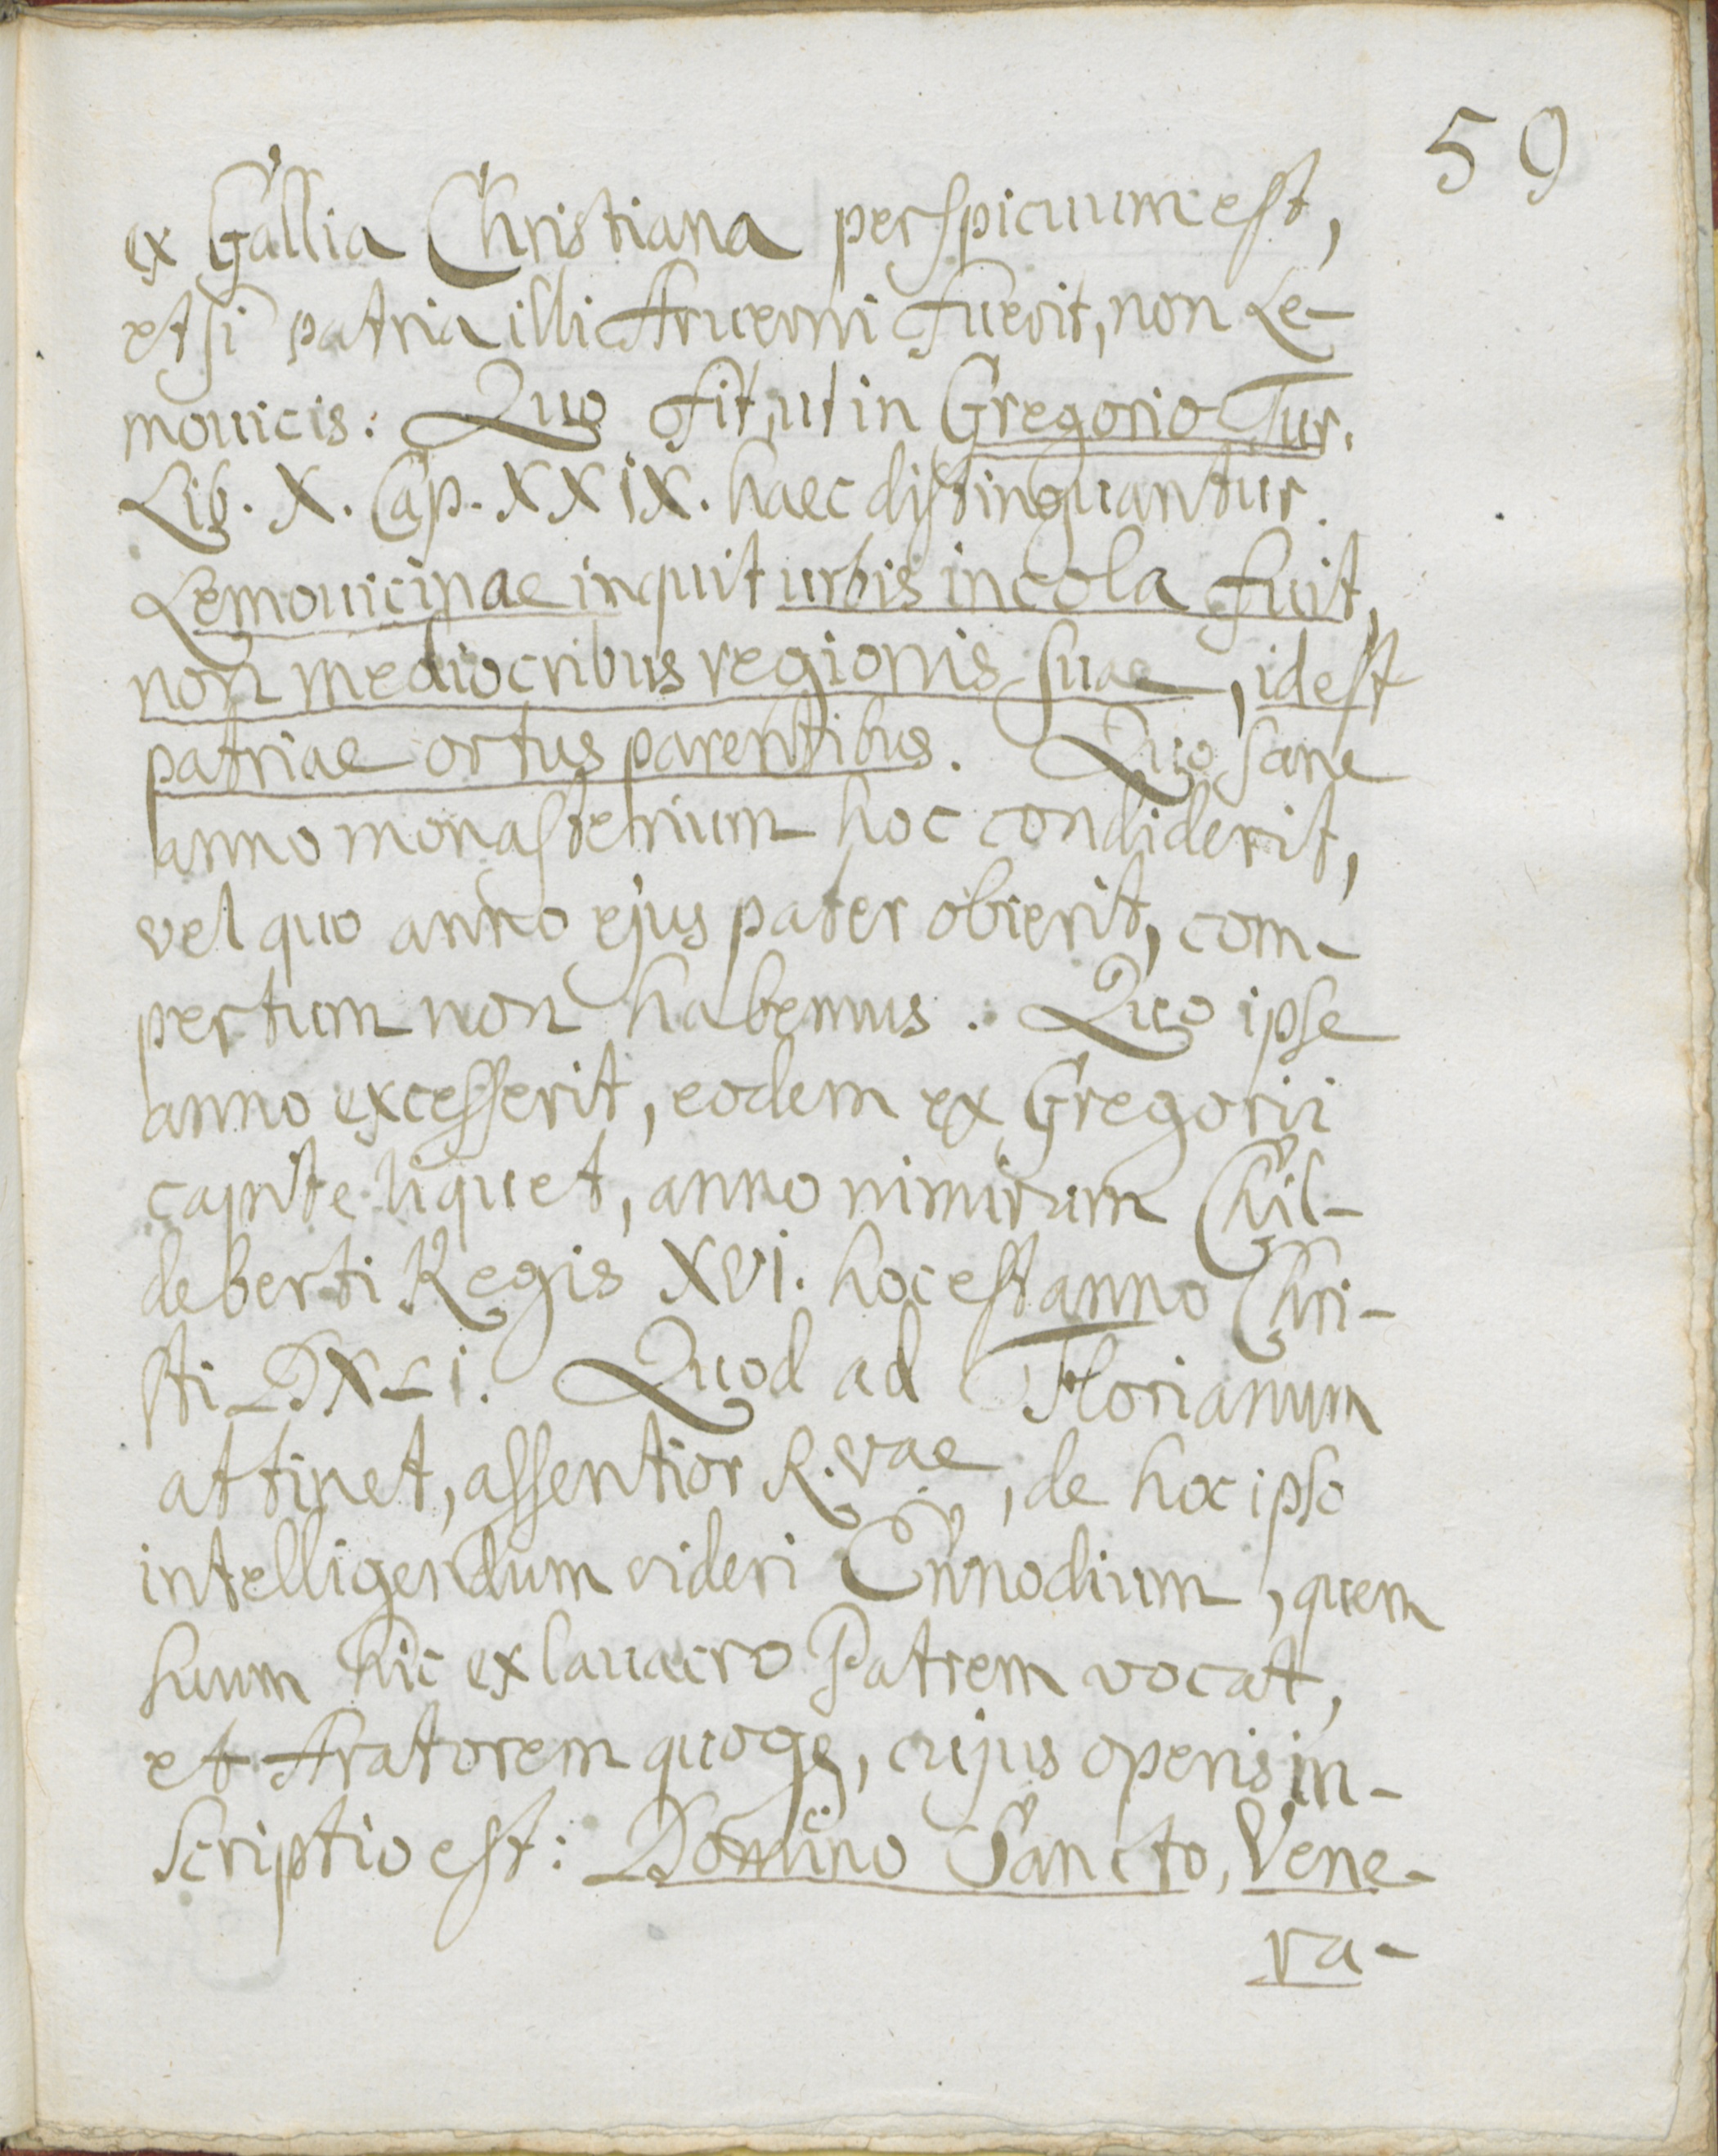 59
ex Gallia Christiana perspicuum est,
etsi patria illi Aruerni fuerit, non Le-
mouicis: Quo fit, ut in Gregorio Tur.
Lib. X. Cap. XXIX. haec distinguantur.
Lemouicinae inquit urbis incola fuit,
non mediocribus regionis suae, id est
patriae ortus parentibus. Quo sane
anno monasterium hoc condiderit,
vel quo anno ejus pater obierit, com-
pertum non habemus. Quo ipse
anno excesserit, eodem ex Gregorii
capite liquet, anno nimirum Chil-
deberti Regis XVI. hoc est anno Chri-
sti DXCI. Quod ad Florianum
attinet, assentior R. vae, de hoc ipso
intelligendum videri Ennodium, quem
suum hic ex lauacro Patrem vocat,
et Aratorem quoqe, cujus operis in-
scriptio est: Domino Sancto, Vene-
ra-